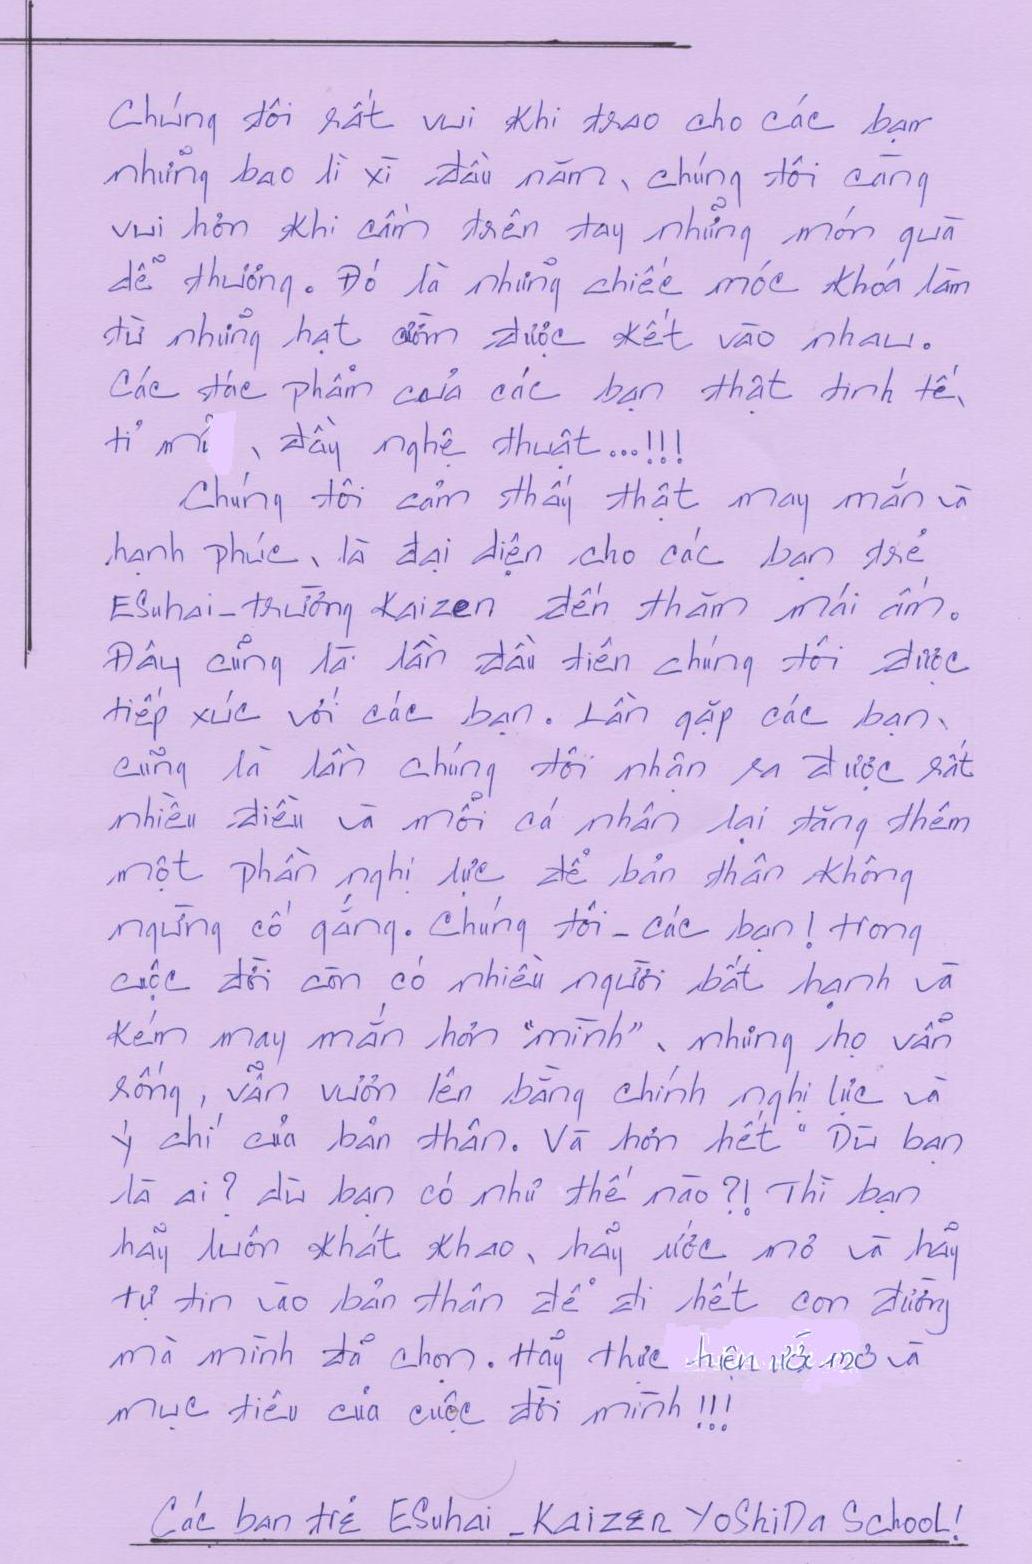 Chúng tôi rất vui khi trao cho các bạn
những bao lì xì đầu năm, chúng tôi càng
vui hơn khi cầm trên tay những món quà
dễ thương. Đó là những chiếc móc khóa làm
từ những hạt cườm được kết vào nhau.
Các tác phẩm của các bạn thật tinh tế,
tỉ mỉ, đầy nghệ thuật...!!!
Chúng tôi cảm thấy thật may mắn và
hạnh phúc, là đại diện cho các bạn trẻ
ESuhai_trường Kaizen đến thăm mái ấm.
Đây cũng là lần đầu tiên chúng tôi được
tiếp xúc với các bạn. Lần gặp các bạn,
cũng là lần chúng tôi nhận ra được rất
nhiều điều và mỗi cá nhân lại tăng thêm
một phần nghị lực để bản thân không
ngừng cố gắng. Chúng tôi_các bạn! trong
cuộc đời còn có nhiều người bất hạnh và
kém may mắn hơn "mình", nhưng họ vẫn
sống, vẫn vươn lên bằng chính nghị lực và
ý chí của bản thân. Và hơn hết " Dù bạn
là ai? dù bạn có như thế nào?! Thì bạn
hãy luôn khát khao, hãy ước mơ và hãy
tự tin vào bản thân để đi hết con đường
mà mình đã chọn. Hãy thực hiện ước mơ và
mục tiêu của cuộc đời mình!!!
Các bạn trẻ ESuhai_KaizEn YoShiDa School!